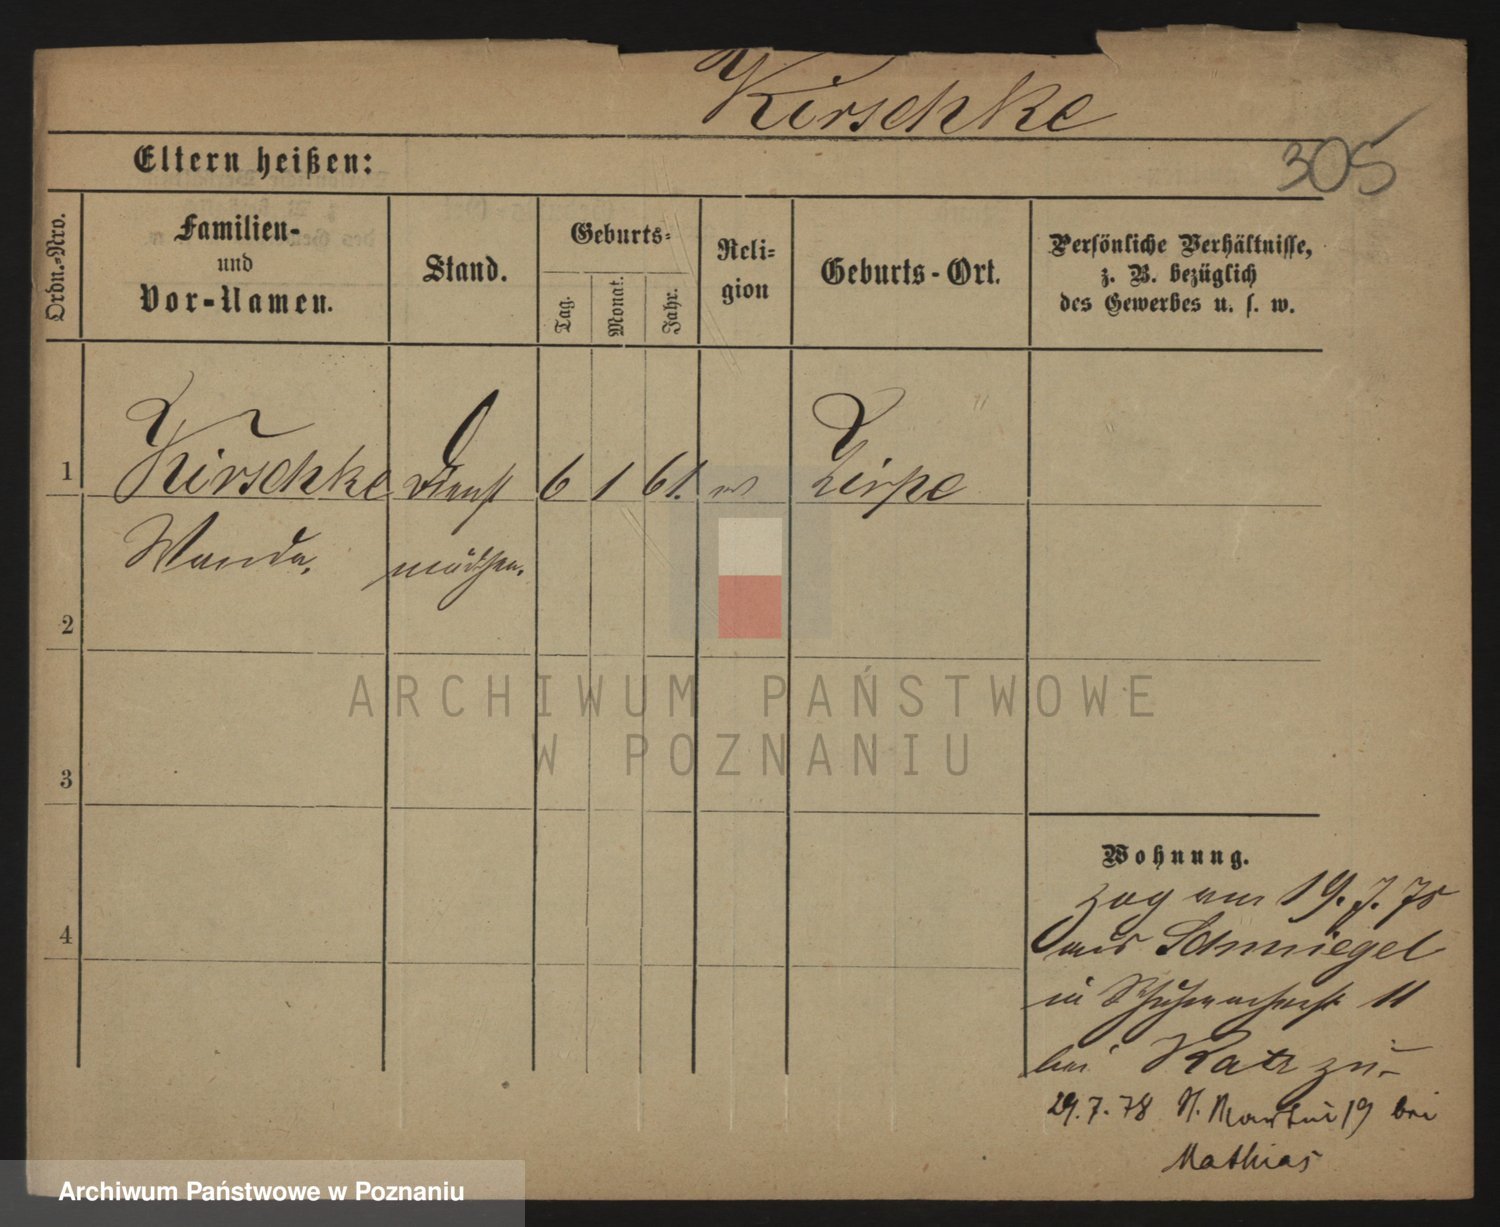 Kirschke
305
Eltern heißen:
Ordn.-Nro.
Familien- und Vor-Namen.
Stand.
Geburts-
Tag.
Monat.
Jahr.
Reli-
gion
Geburts-Ort.
Persönliche Verhältnisse,
z. B. bezüglich
des Gewerbes u. s. w.
1 Kirschke Dienst 6 1 61.
Wanda. mädchen.
2
3
4
ARCHIWUM PAŃSTWOWE
W POZNANIU
Wohnung.
zog am 19. 7. 78
aus Schmiegel
in 11
bei Katz zu
29. 7. 78 St. Martin 19 bei
Mathias
Archiwum Państwowe w Poznaniu